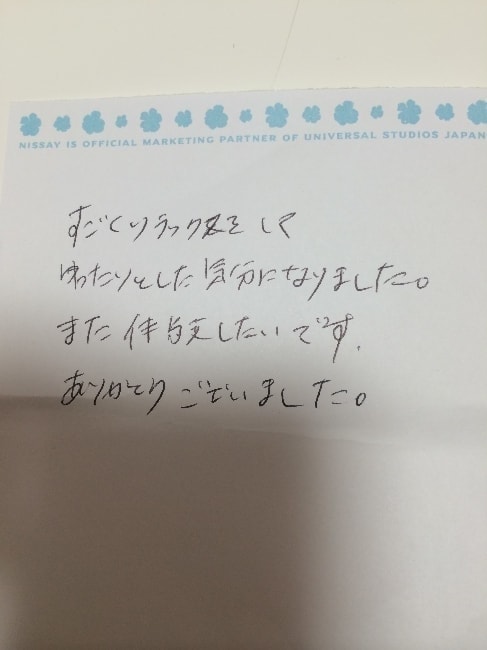 NISSAY IS OFFICIAL MARKETING PARTNER OF UNIVERSAL STUDIOS JAPAN
すごくリラックスをして
ゆったりとした気分になりました。
また体験したいです.
ありがとうございました。